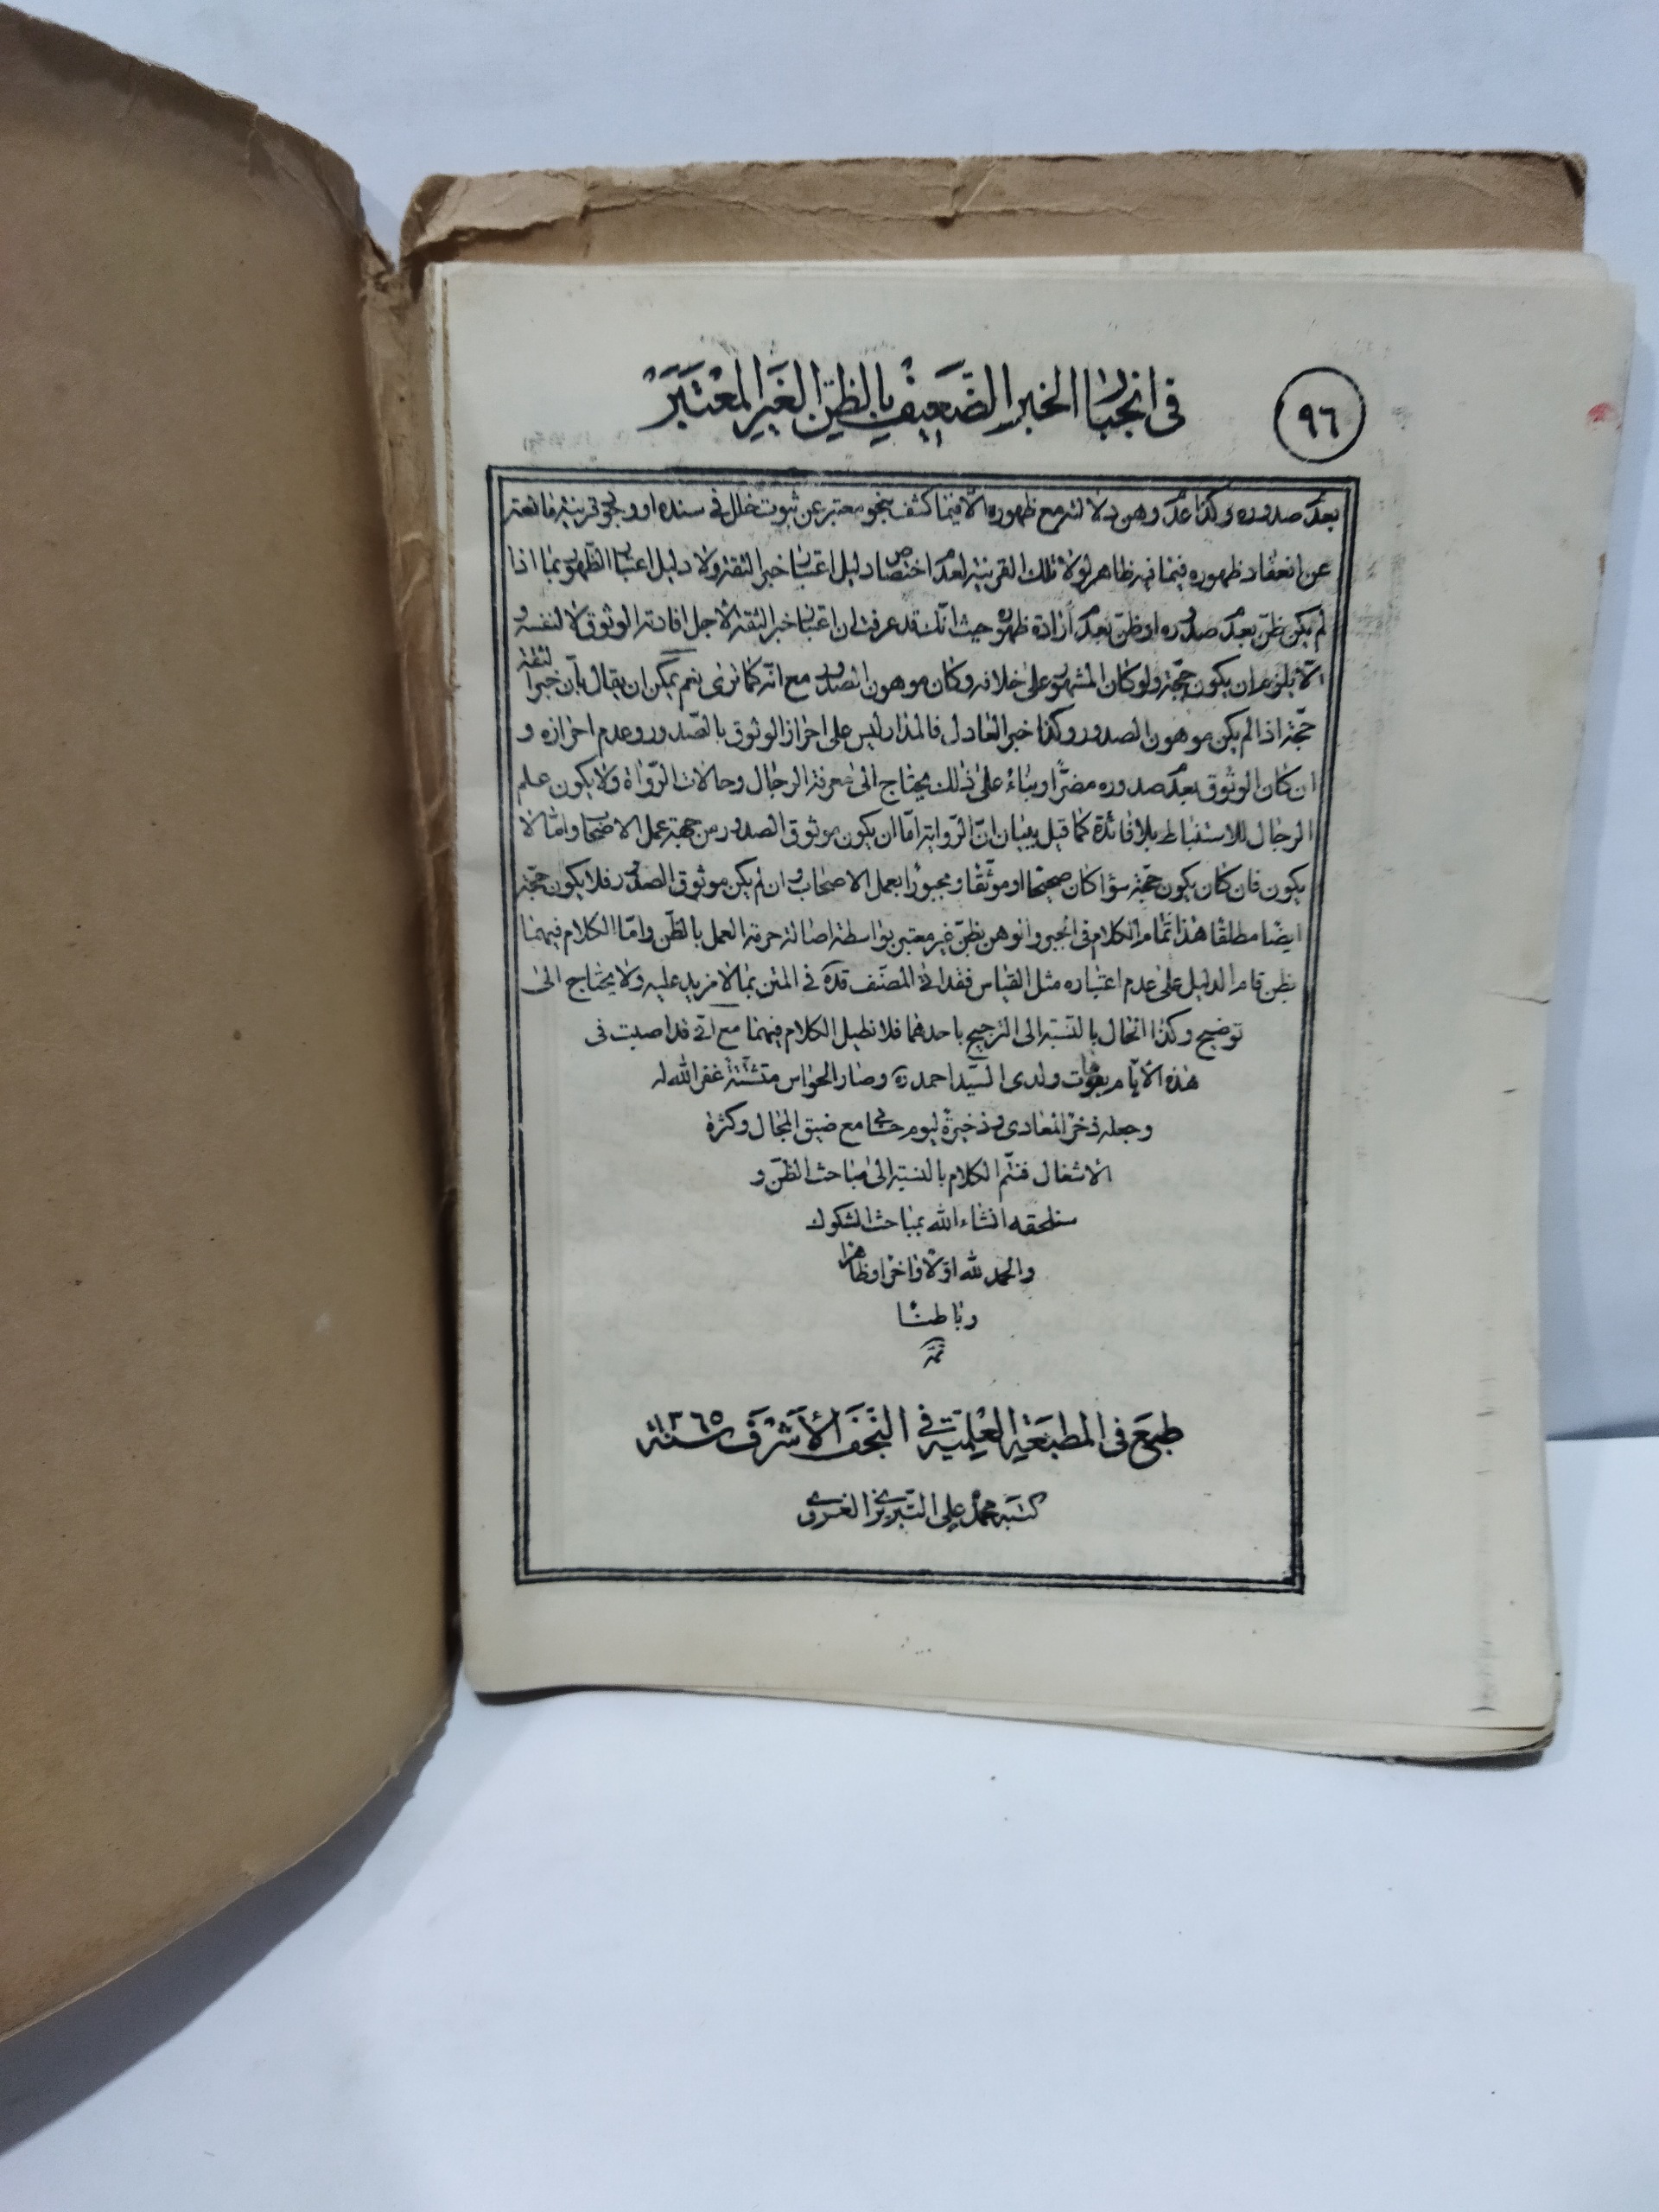 ٩٦
في انجبار الخبر الضعيف بالظن الغير المعتبر
بعدم صدوره وكذا عدم وهن دلالته مع ظهوره الّا فيما كشف بنحو معتبر عن ثبوت خلل في سنده او وجود قرينة مانعة
عن انعقاد ظهوره فيما فيه ظاهر لولا تلك القرينة لعدم اختصاص دليل اعتبار خبر الثقة ولا دليل اعتبار الظهور بما اذا
لم يكن ظنّ بعدم صدوره او ظنّ بعدم ارادة ظهوره حيث انّك قد عرفت ان اعتبار خبر الثقة لاجل افادته الوثوق لا لنفسه و
الّا يلزم ان يكون حجّة ولو كان المشهور على خلافه وكان موهون الصدور مع انّه كما ترى نعم يمكن ان يقال بأن خبر الثقة
حجّة اذا لم يكن موهون الصدور وكذا خبر العادل فالمدار ليس على احراز الوثوق بالصّدور وعدم احرازه و
ان كان الوثوق بعدم صدوره مضرّا وبناءً على ذلك يحتاج الى معرفة الرجال وحالات الرّواة ولا يكون علم
الرجال للاستنباط بلا فائدة كما قيل ببيان انّ الرّواية امّا ان يكون موثوق الصدور من جهة عمل الاصحاب وامّا لا
يكون فان كان يكون حجّة سواء كان صحيحا او موثّقا او مجبورا بعمل الاصحاب وان لم يكن موثوق الصدور فلا يكون حجّة
ايضا مطلقا هذا تمام الكلام في الجبر والوهن بظنّ غير معتبر بواسطة اصالة حرمة العمل بالظّن وامّا الكلام فيهما
بظن قام الدليل على عدم اعتباره مثل القياس فقد افاد المصنّف قده في المتن بما لا مزيد عليه ولا يحتاج الى
توضيح وكذا الحال بالنّسبة الى الترجيح باحدهما فلا نطيل الكلام فيهما مع انّي قد اصبت في
هذه الأيّام بفوت ولدي السيّد احمد ره وصار الحواس متشتّتة غفر الله له
وجعله ذخرا لمعادي وذخيرة ليوم حسابي مع ضيق المجال وكثرة
الاشغال فنتم الكلام بالنسبة الى مباحث الظنّ و
سنلحقه انشاء الله بمباحث الشكوك
والحمد لله اوّلا واخرا وظاهرا
وباطنا
تمّت
طبع في المطبعة العلمية في النجف الأشرف سنة ١٣٦٥
كتبه محمد علي التبريزي الغروي